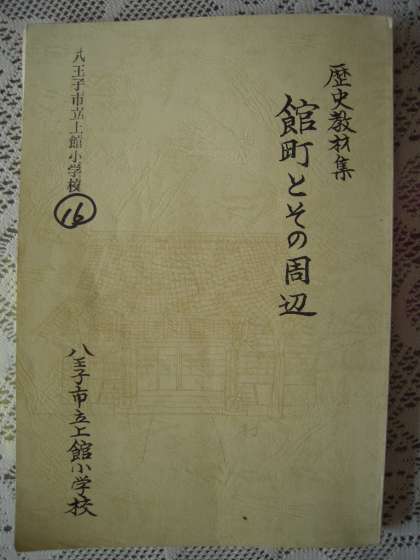 歴史教材集
館町とその周辺
八王子市立上館小学校
16
八王子市立上館小学校